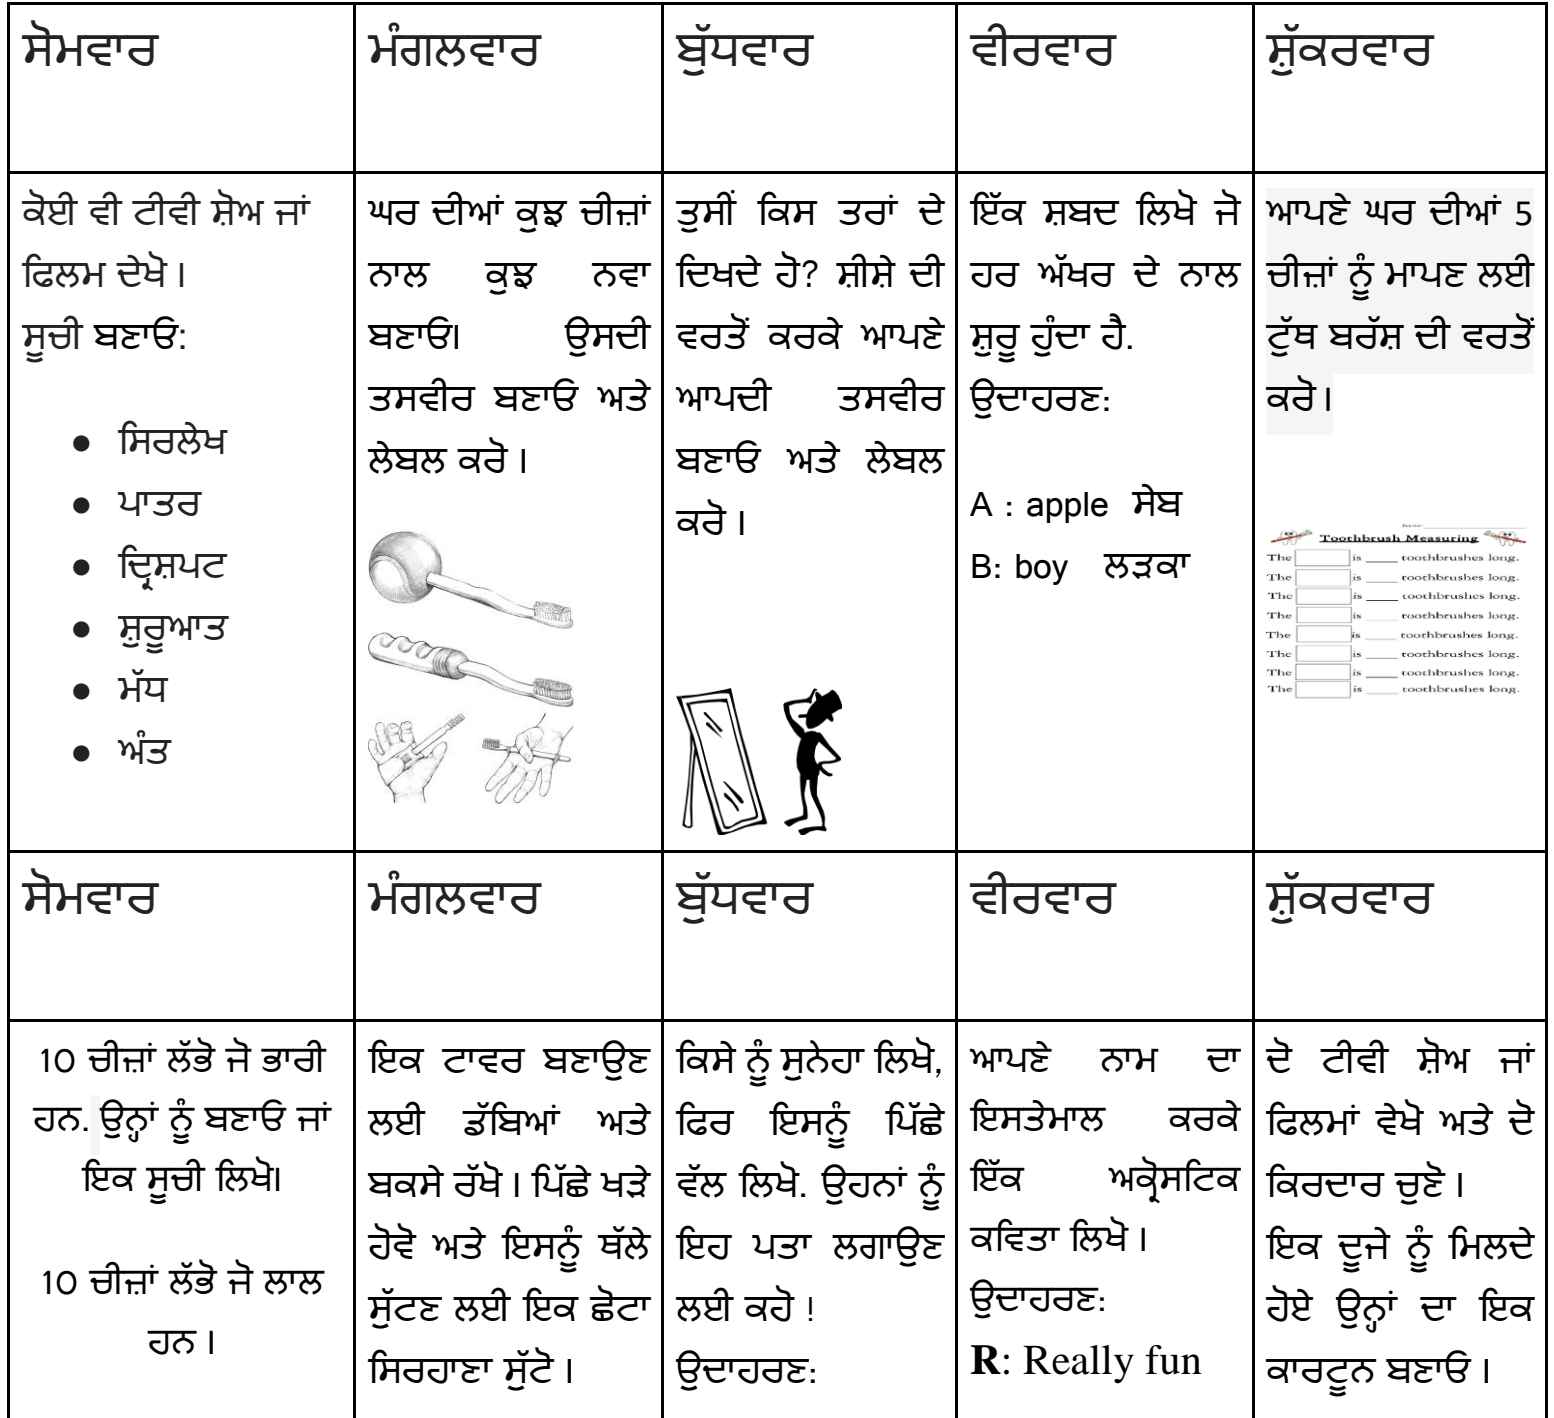 ਸੋਮਵਾਰ
ਮੰਗਲਵਾਰ
ਬੁੱਧਵਾਰ
ਵੀਰਵਾਰ
ਸ਼ੁੱਕਰਵਾਰ
ਕੋਈ ਵੀ ਟੀਵੀ ਸ਼ੋਅ ਜਾਂ
ਫਿਲਮ ਦੇਖੋ।
ਸੂਚੀ ਬਣਾਓ:
● ਸਿਰਲੇਖ
● ਪਾਤਰ
● ਦ੍ਰਿਸ਼ਪਟ
● ਸ਼ੁਰੂਆਤ
● ਮੱਧ
● ਅੰਤ
ਘਰ ਦੀਆਂ ਕੁਝ ਚੀਜ਼ਾਂ
ਨਾਲ ਕੁਝ ਨਵਾ
ਬਣਾਓ। ਉਸਦੀ
ਤਸਵੀਰ ਬਣਾਓ ਅਤੇ
ਲੇਬਲ ਕਰੋ।
ਤੁਸੀਂ ਕਿਸ ਤਰਾਂ ਦੇ
ਦਿਖਦੇ ਹੋ? ਸ਼ੀਸ਼ੇ ਦੀ
ਵਰਤੋਂ ਕਰਕੇ ਆਪਣੇ
ਆਪਦੀ ਤਸਵੀਰ
ਬਣਾਓ ਅਤੇ ਲੇਬਲ
ਕਰੋ।
ਇੱਕ ਸ਼ਬਦ ਲਿਖੋ ਜੋ
ਹਰ ਅੱਖਰ ਦੇ ਨਾਲ
ਸ਼ੁਰੂ ਹੁੰਦਾ ਹੈ.
ਉਦਾਹਰਣ:
A : apple ਸੇਬ
B: boy ਲੜਕਾ
ਆਪਣੇ ਘਰ ਦੀਆਂ 5
ਚੀਜ਼ਾਂ ਨੂੰ ਮਾਪਣ ਲਈ
ਟੁੱਥ ਬਰੱਸ਼ ਦੀ ਵਰਤੋਂ
ਕਰੋ।
Name
Toothbrush Measuring
The is ____ toothbrushes long.
The is ____ toothbrushes long.
The is ____ toothbrushes long.
The is ____ toothbrushes long.
The is ____ toothbrushes long.
The is ____ toothbrushes long.
The is ____ toothbrushes long.
The is ____ toothbrushes long.
ਸੋਮਵਾਰ
ਮੰਗਲਵਾਰ
ਬੁੱਧਵਾਰ
ਵੀਰਵਾਰ
ਸ਼ੁੱਕਰਵਾਰ
10 ਚੀਜ਼ਾਂ ਲੱਭੋ ਜੋ ਭਾਰੀ
ਹਨ. ਉਨ੍ਹਾਂ ਨੂੰ ਬਣਾਓ ਜਾਂ
ਇਕ ਸੂਚੀ ਲਿਖੋ।
10 ਚੀਜ਼ਾਂ ਲੱਭੋ ਜੋ ਲਾਲ
ਹਨ।
ਇਕ ਟਾਵਰ ਬਣਾਉਣ
ਲਈ ਡੱਬਿਆਂ ਅਤੇ
ਬਕਸੇ ਰੱਖੋ। ਪਿੱਛੇ ਖੜੇ
ਹੋਵੋ ਅਤੇ ਇਸਨੂੰ ਥੱਲੇ
ਸੁੱਟਣ ਲਈ ਇਕ ਛੋਟਾ
ਸਿਰਹਾਣਾ ਸੁੱਟੋ।
ਕਿਸੇ ਨੂੰ ਸੁਨੇਹਾ ਲਿਖੋ,
ਫਿਰ ਇਸਨੂੰ ਪਿੱਛੇ
ਵੱਲ ਲਿਖੋ. ਉਹਨਾਂ ਨੂੰ
ਇਹ ਪਤਾ ਲਗਾਉਣ
ਲਈ ਕਹੋ !
ਉਦਾਹਰਣ:
ਆਪਣੇ ਨਾਮ ਦਾ
ਇਸਤੇਮਾਲ ਕਰਕੇ
ਇੱਕ ਅਕ੍ਰੋਸਟਿਕ
ਕਵਿਤਾ ਲਿਖੋ।
ਉਦਾਹਰਣ:
R: Really fun
ਦੋ ਟੀਵੀ ਸ਼ੋਅ ਜਾਂ
ਫਿਲਮਾਂ ਵੇਖੋ ਅਤੇ ਦੋ
ਕਿਰਦਾਰ ਚੁਣੋ।
ਇਕ ਦੂਜੇ ਨੂੰ ਮਿਲਦੇ
ਹੋਏ ਉਨ੍ਹਾਂ ਦਾ ਇਕ
ਕਾਰਟੂਨ ਬਣਾਓ।